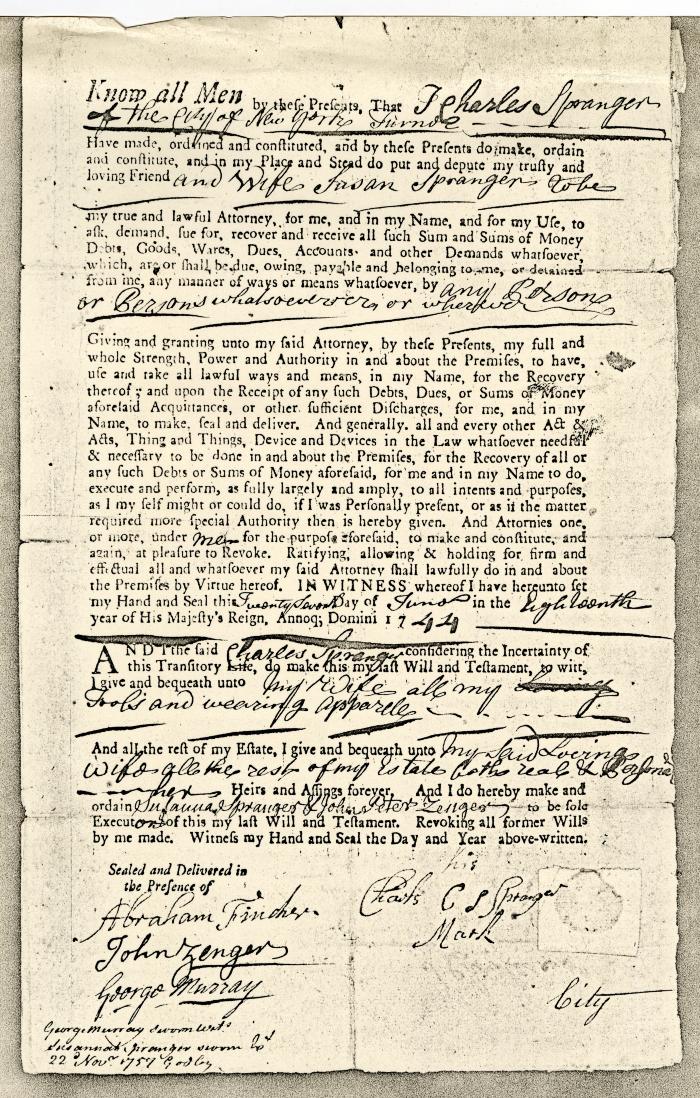 Know all Men by these Presents, That I Charles Spranger
of the City of New York Turnor
Have made, ordained and constituted, and by these Presents do make, ordain
and constitute, and in my Place and Stead do put and depute my trusty and
loving Friend and Wife Susan Spranger to be
my true and lawful Attorney, for me, and in my Name, and for my Use, to
ask, demand, sue for, recover and receive all such Sum and Sums of Money
Debts, Goods, Wares, Dues, Accounts and other Demands whatsoever,
which, are or shall be due, owing, payable and belonging to me, or detained
from me, any manner of ways or means whatsoever, by any Person
or Persons whatsoever or wherever
Giving and granting unto my said Attorney, by these Presents, my full and
whole Strength, Power and Authority in and about the Premises, to have,
use and take all lawful ways and means, in my Name, for the Recovery
thereof; and upon the Receipt of any such Debts, Dues, or Sums of Money
aforesaid Acquittances, or other sufficient Discharges, for me, and in my
Name, to make, seal and deliver. And generally all and every other Act &
Acts, Thing and Things, Device and Devices in the Law whatsoever needful
& necessary to be done in and about the Premises, for the Recovery of all or
any such Debts or Sums of Money aforesaid, for me and in my Name to do,
execute and perform, as fully largely and amply, to all intents and purposes,
as I my self might or could do, if I was Personally present, or as if the matter
required more special Authority then is hereby given. And Attornies one,
or more, under me for the purpose aforesaid, to make and constitute, and
again, at pleasure to Revoke. Ratifying, allowing & holding for firm and
effectual all and whatsoever my said Attorney shall lawfully do in and about
the Premises by Virtue hereof. IN WITNESS whereof I have hereunto set
my Hand and Seal this Day of June in the Eighteenth
year of His Majesty's Reign, Annoq; Domini 1744
AND I the said Charles Spranger considering the Incertainty of
this Transitory Life, do make this my last Will and Testament, to witt,
I give and bequeath unto my Wife all my
Tools and wearing Apparele
And all the rest of my Estate, I give and bequeath unto my said Loving
Wife all the rest of my Estate both real & Personal
her Heirs and Assings forever, And I do hereby make and
ordain Susannna Spranger & John Peter Zenger to be sole
Executors of this my last Will and Testament. Revoking all former Wills
by me made. Witness my Hand and Seal the Day and Year above-written.
Sealed and Delivered in
the Presence of
Abraham Fincher
John Zenger
George Murray
his
Charls C S Spranger
Mark
City
George Murray sworn
Susannah Spranger sworn
22d Novr 1757